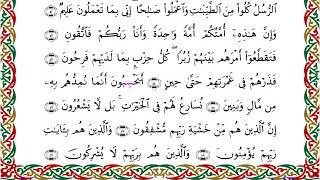 ٱلرُّسُلُ كُلُوا۟ مِنَ ٱلطَّيِّبَـٰتِ وَٱعْمَلُوا۟ صَـٰلِحًا ۖ إِنِّى بِمَا تَعْمَلُونَ عَلِيمٌ ۝٥١
وَإِنَّ هَـٰذِهِۦٓ أُمَّتُكُمْ أُمَّةً وَٰحِدَةً وَأَنَا۠ رَبُّكُمْ فَٱتَّقُونِ ۝٥٢
فَتَقَطَّعُوٓا۟ أَمْرَهُم بَيْنَهُمْ زُبُرًا ۖ كُلُّ حِزْبٍۭ بِمَا لَدَيْهِمْ فَرِحُونَ ۝٥٣
فَذَرْهُمْ فِى غَمْرَتِهِمْ حَتَّىٰ حِينٍ ۝٥٤ أَيَحْسَبُونَ أَنَّمَا نُمِدُّهُم بِهِۦ
مِن مَّالٍ وَبَنِينَ ۝٥٥ نُسَارِعُ لَهُمْ فِى ٱلْخَيْرَٰتِ ۚ بَل لَّا يَشْعُرُونَ ۝٥٦
إِنَّ ٱلَّذِينَ هُم مِّنْ خَشْيَةِ رَبِّهِم مُّشْفِقُونَ ۝٥٧ وَٱلَّذِينَ هُم بِـَٔايَـٰتِ
رَبِّهِمْ يُؤْمِنُونَ ۝٥٨ وَٱلَّذِينَ هُم بِرَبِّهِمْ لَا يُشْرِكُونَ ۝٥٩